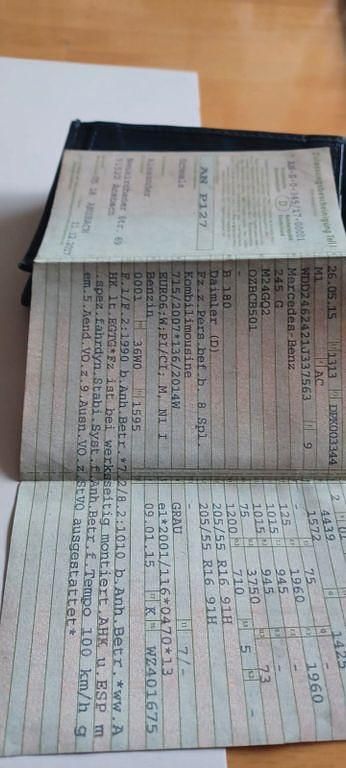 Zulassungsbescheinigung Teil I
D
AN PI27
Alexander
Str. 69
91522 Ansbach
ANSBACH
11.12.2017
26.05.15 1313 DPX003344
M1 AC
WDD2462421J337563 9
Mercedes-Benz
245 G
M24GQ2
UZBCB501
B 180
Daimler (D)
Fz.z.Pers.bef.b. 8 Spl.
Kombilimousine
715/2007*136/2014W
EURO6;W;PI/CI; M, N1 I
Benzin
0001 36W0 1595
4439 1425
1572 75 1960
- 1960 -
125 945 -
1015 945 -
1015 3750 73
75 710 5 -
1200
205/55 R16 91H
205/55 R16 91H
-
GRAU 7/-
e1*2001/116*0470*13
09.01.15 K WZ401675
F.1/F.2:1990 b.Anh.Betr.*7.2/8.2:1010 b.Anh.Betr.*ww.A
HK lt.EGTG*Fz ist bei werkseitig montiert.AHK u.ESP m
.spez.fahrdyn.Stabi.Syst.f.Anh.Betr.f.Tempo 100 km/h g
em.5.Aend.VO.z.9.Ausn.VO.z.StVO ausgestattet*